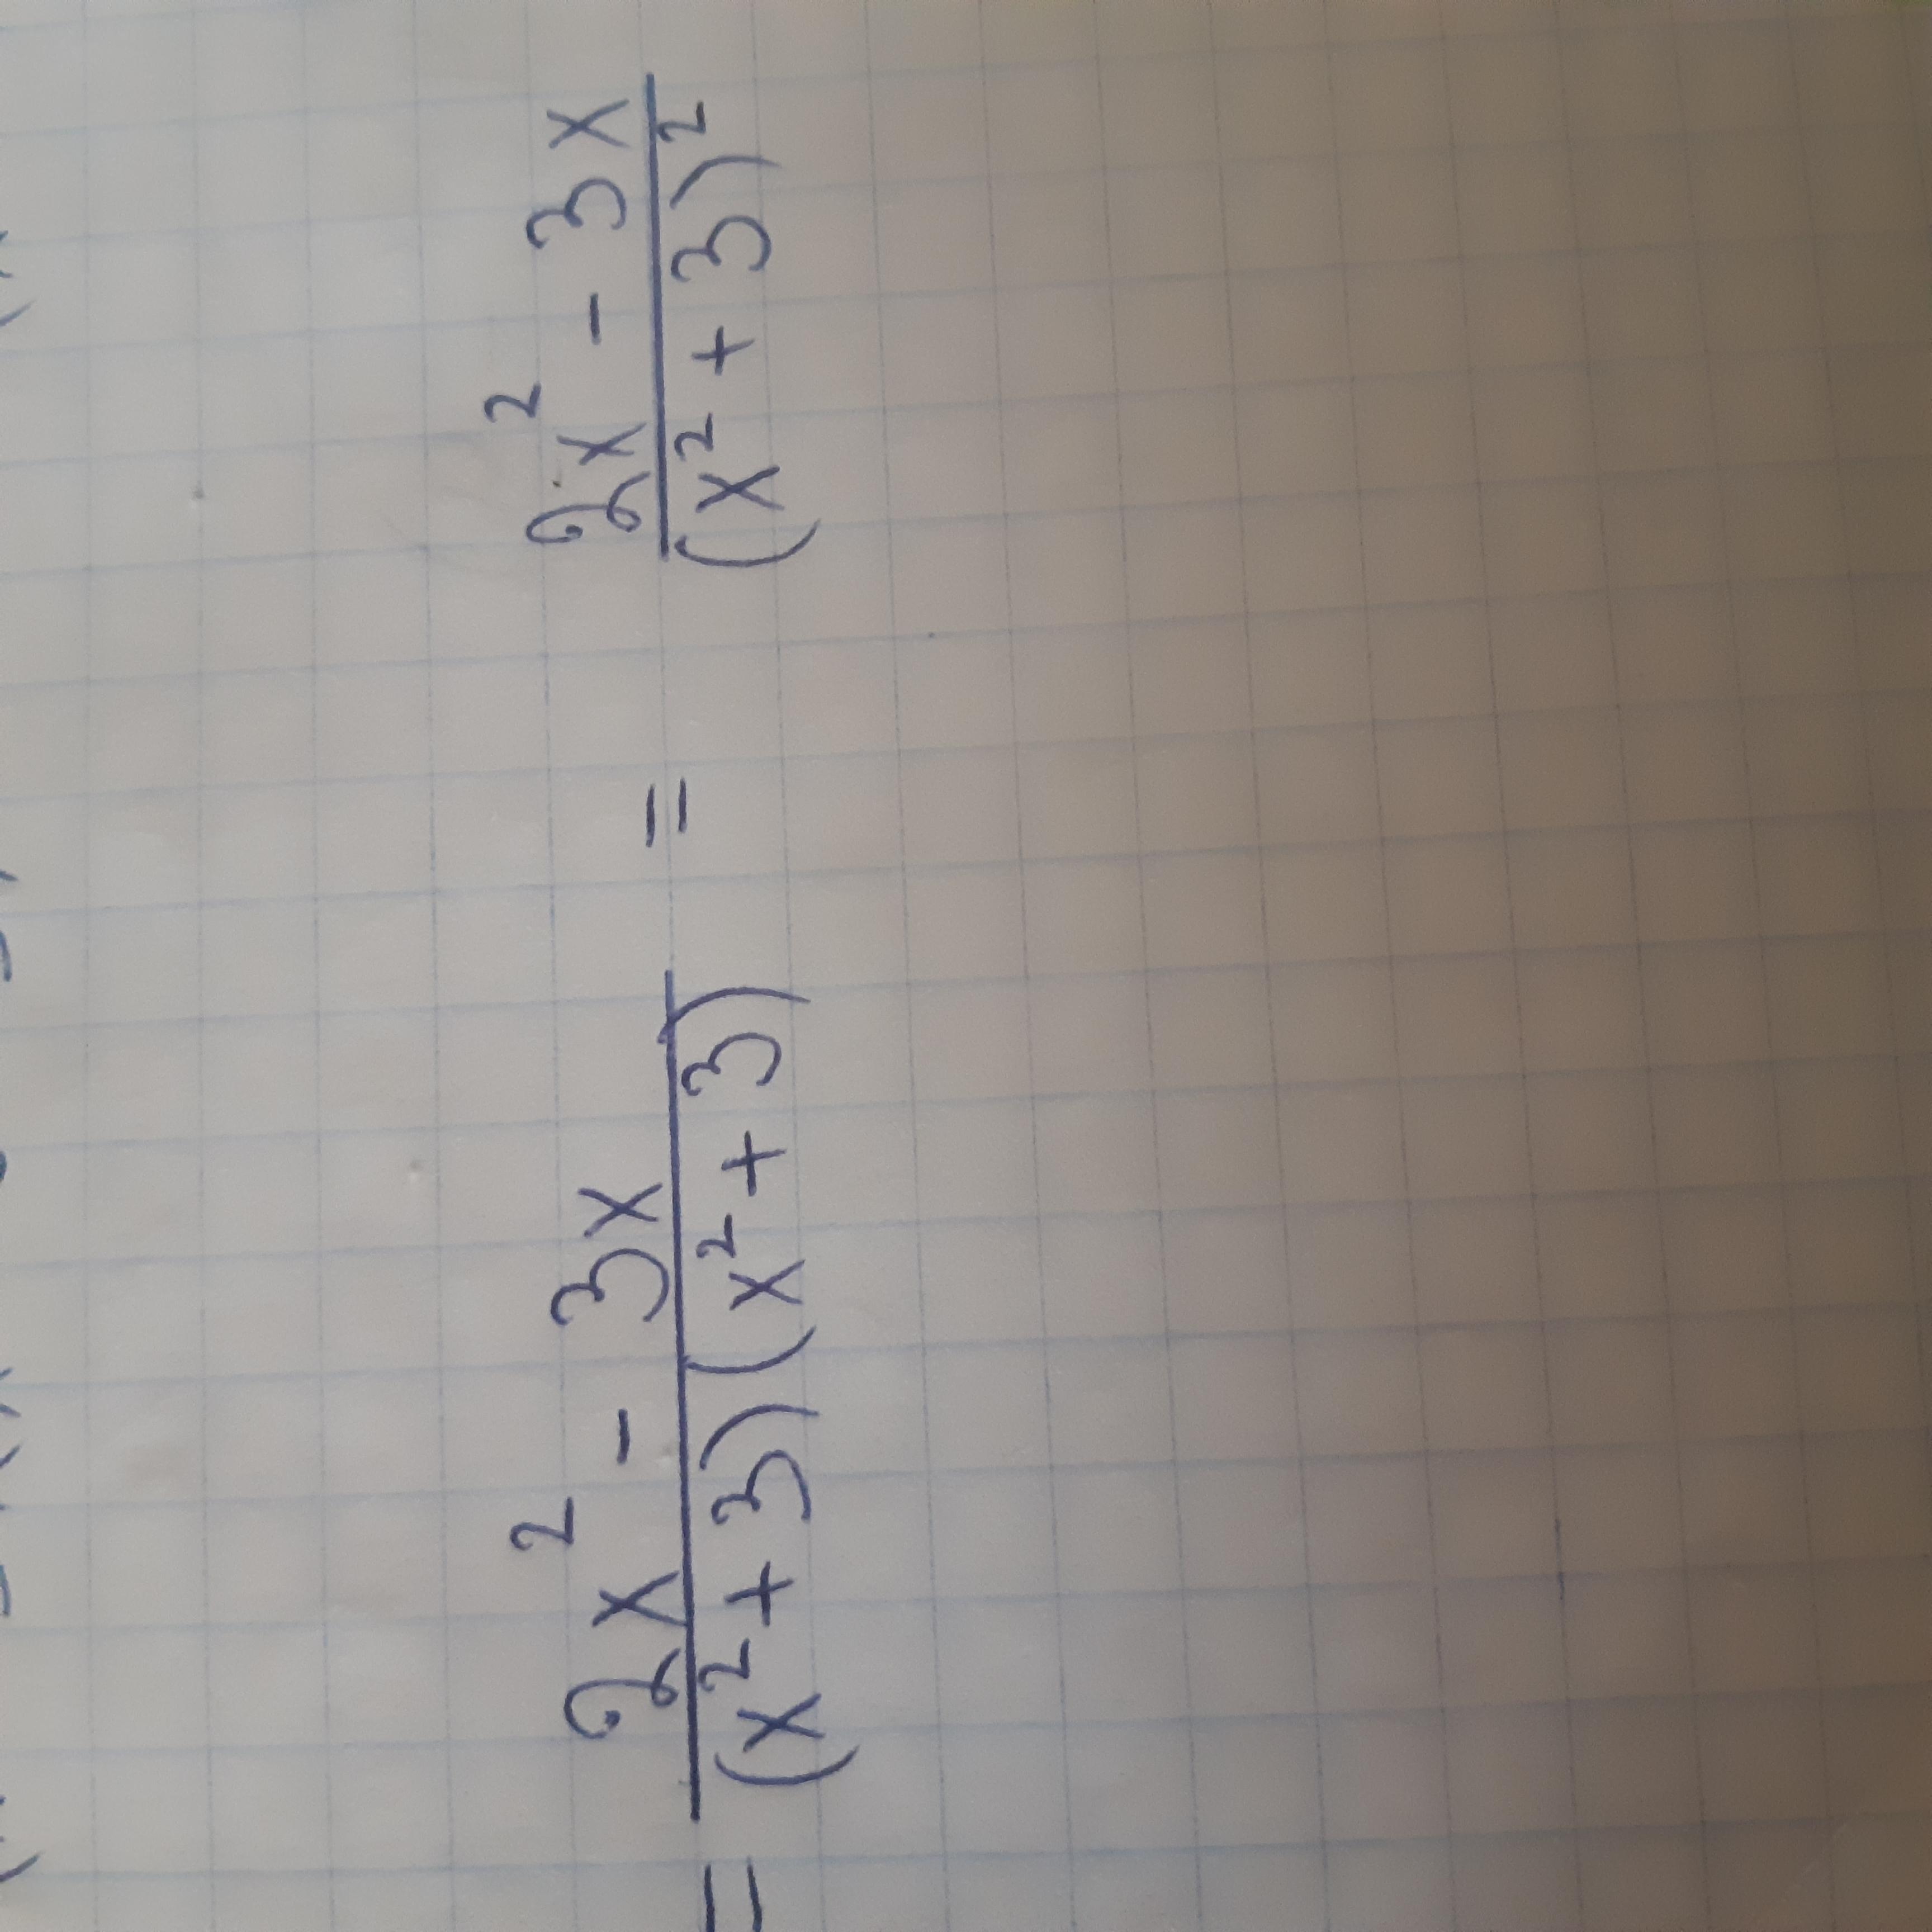 = (2x² - 3x) / ((x² + 3)(x² + 3)) = (2x² - 3x) / (x² + 3)²